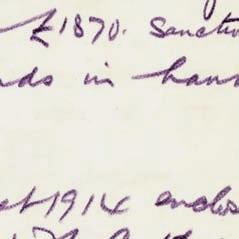 £1870. Sanctio
nds in han
ct 1914 enclos